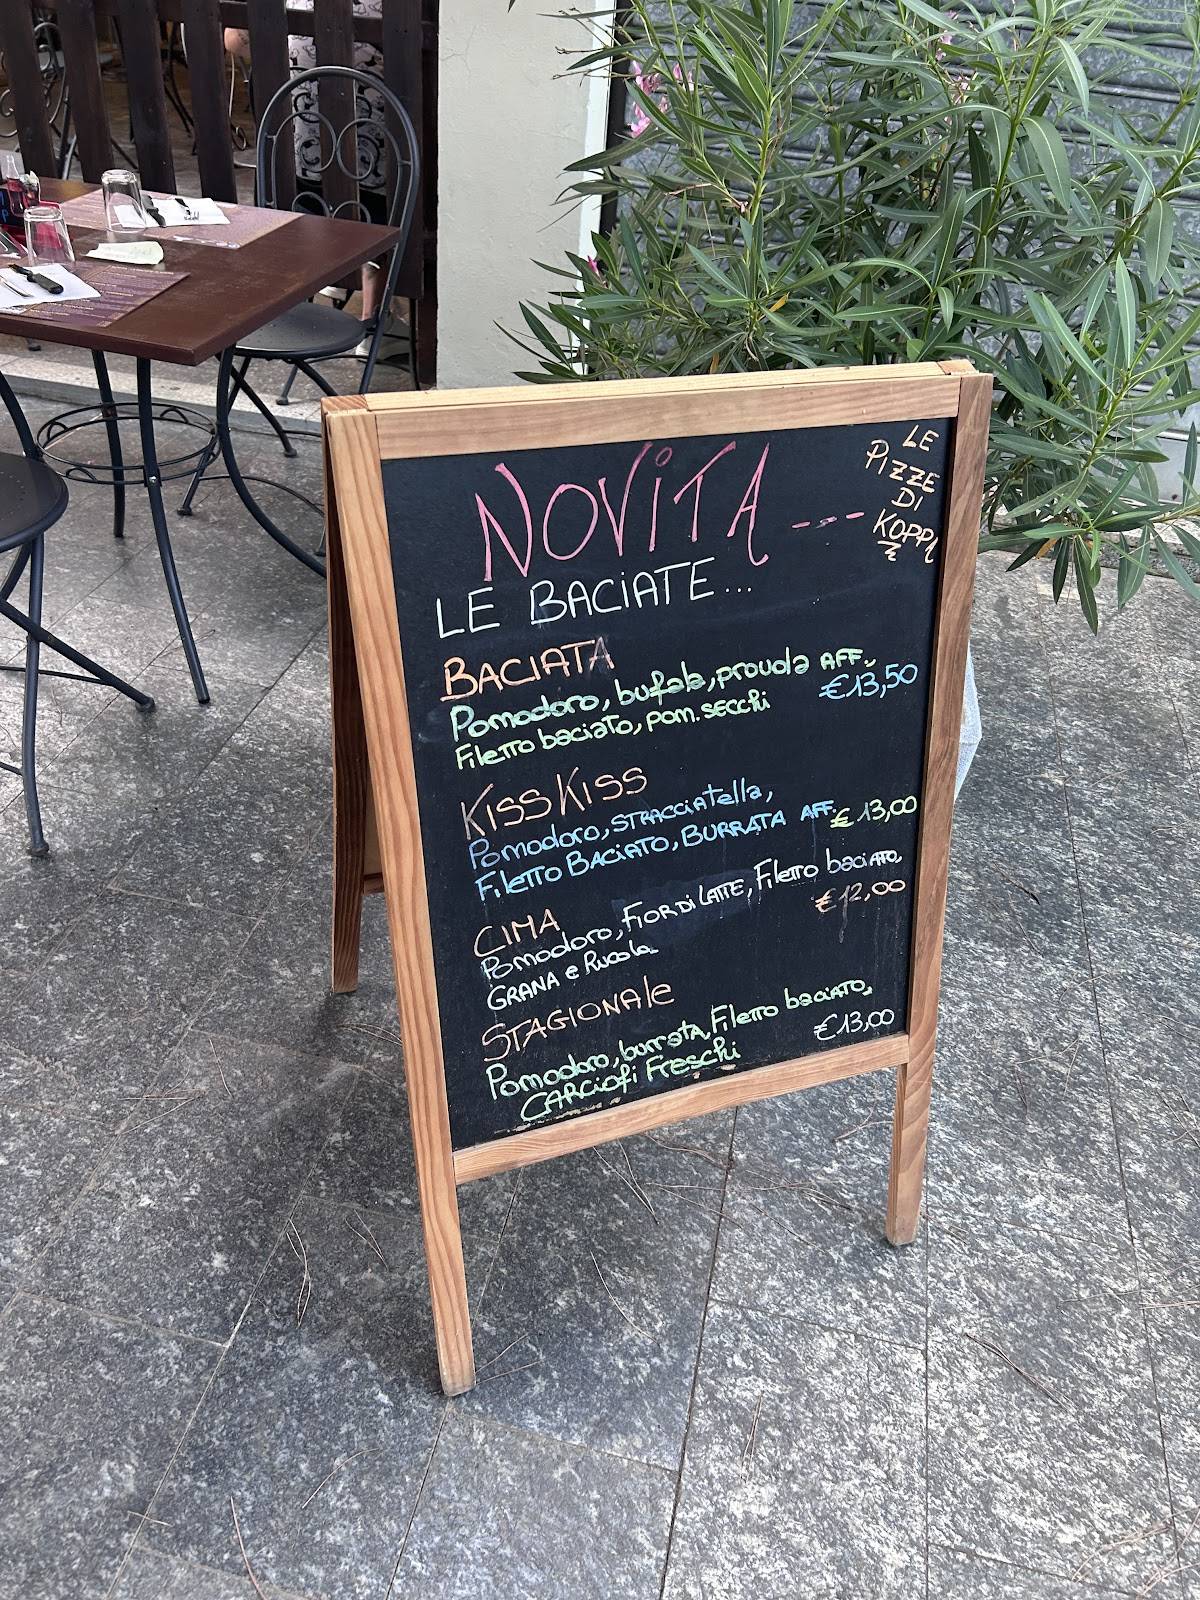 NOVITA ---
LE
PIZZE
DI
KOPPA
LE BACIATE...
BACIATA
Pomodoro, bufala, provola AFF.,
Filetto baciato, pom. secchi
€13,50
KISS KISS
Pomodoro, STRACCIAtella,
Filetto BACIATO, BURRATA AFF.
€ 13,00
CIMA
Pomodoro, FIOR Di LATTE, Filetto baciato,
GRANA e Rucola
€12,00
STAGIONAle
Pomodoro, burrata, Filetto baciato,
CARCiofi Freschi
€13,00